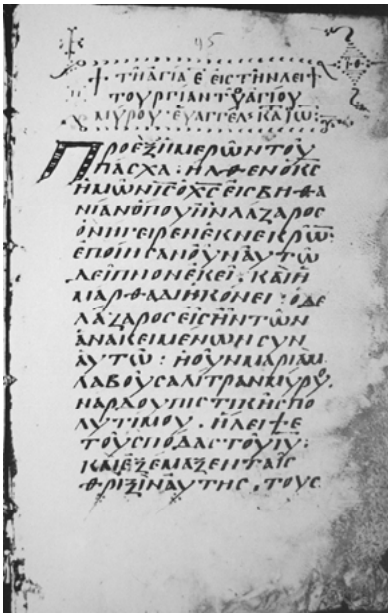 95
+ ΤΗ ΑΓΙΑ Ε ΕΙϹ ΤΗΝ ΛΕΙ +
ΤΟΥΡΓΙΑΝ Τȣ ΑΓΙΟΥ
ΜΥΡΟΥ · ΕΥΑΓΓΕΛ · ΚΑΤ ΙΩ :
ΠΡΟ ΕΞ ΗΜΕΡΩΝ ΤΟΥ
ΠΑϹΧΑ · ΗΛΘΕΝ Ο Κ̅Ϲ̅
ΗΜΩΝ Ι̅Ϲ̅ Ο Χ̅Ϲ̅ ΕΙϹ ΒΗΘΑ
ΝΙΑΝ ΟΠΟΥ ΗΝ ΛΑΖΑΡΟϹ
ΟΝ ΗΓΕΙΡΕΝ ΕΚ ΝΕΚΡΩ̅ :
ΕΠΟΙΗϹΑΝ ΟΥΝ ΑΥΤΩ
ΔΕΙΠΝΟΝ ΕΚΕΙ · ΚΑΙ Η
ΜΑΡΘΑ ΔΙΗΚΟΝΕΙ · Ο ΔΕ
ΛΑΖΑΡΟϹ ΕΙϹ ΗΝ ΤΩΝ
ΑΝΑΚΕΙΜΕΝΩΝ ϹΥΝ
ΑΥΤΩ : Η ΟΥΝ ΜΑΡΙΑΜ
ΛΑΒΟΥϹΑ ΛΙΤΡΑΝ ΜΥΡȣ
ΝΑΡΔΟΥ ΠΙϹΤΙΚΗϹ ΠΟ
ΛΥΤΙΜΟΥ . ΗΛΕΙΨΕ
ΤΟΥϹ ΠΟΔΑϹ ΤΟΥ Ι̅Υ̅ :
ΚΑΙ ΕΞΕΜΑΞΕΝ ΤΑΙϹ
ΘΡΙΞΙΝ ΑΥΤΗϹ , ΤΟΥϹ